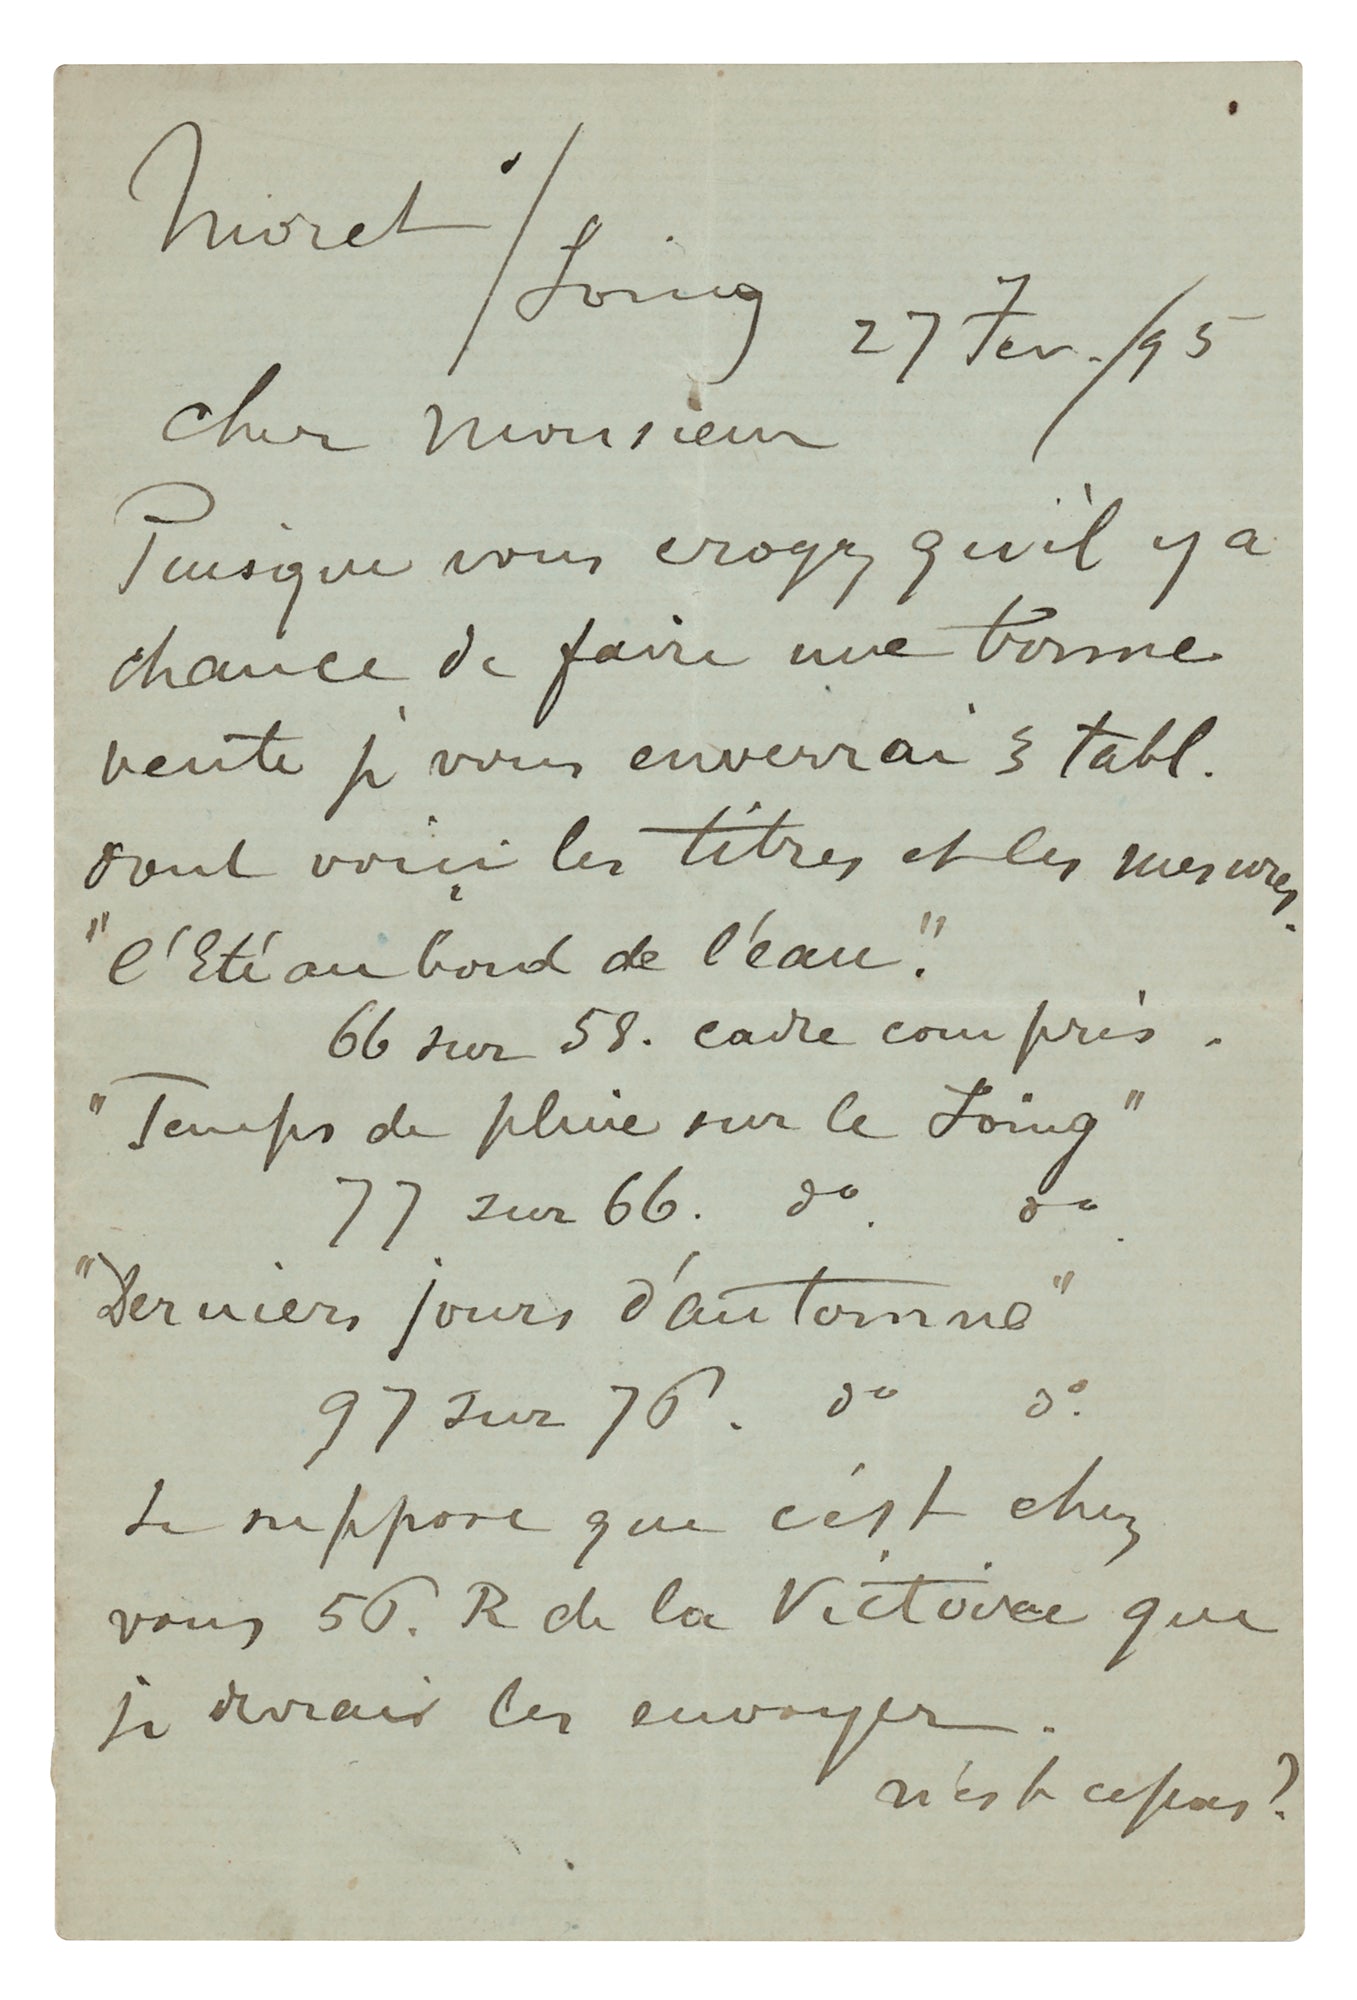 Moret / Loing
27 Fev. /95
cher Monsieur
Puisque vous croyez qu'il y a
chance de faire une bonne
vente je vous enverrai 3 tabl.
dont voiçi les titres et les mesures.
"l'Eté au bord de l'éau."
66 sur 58. cadre compris.
"Temps de pluie sur le Loing"
77 sur 66. do. do.
"Derniers jours d'automne"
97 sur 76. do do.
Je suppose que c'ést chez
vous 56. R de la Victoire que
je devrais les envoyer.
n'est ce pas?